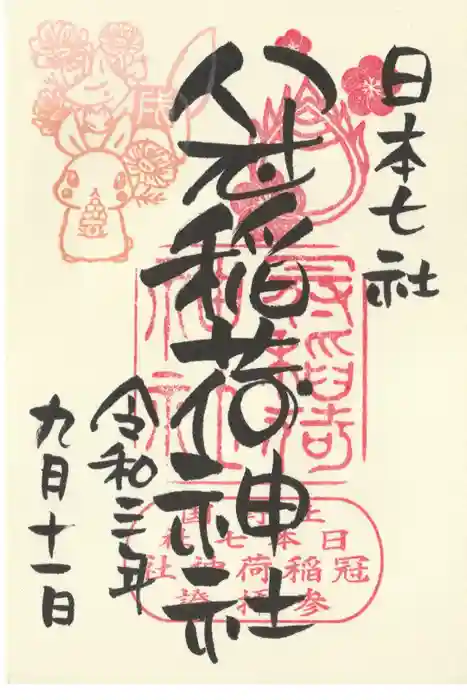 日本七社
八社稲荷神社
令和三年
九月十一日
上野国
日本七社
冠稲荷神社
参拝證